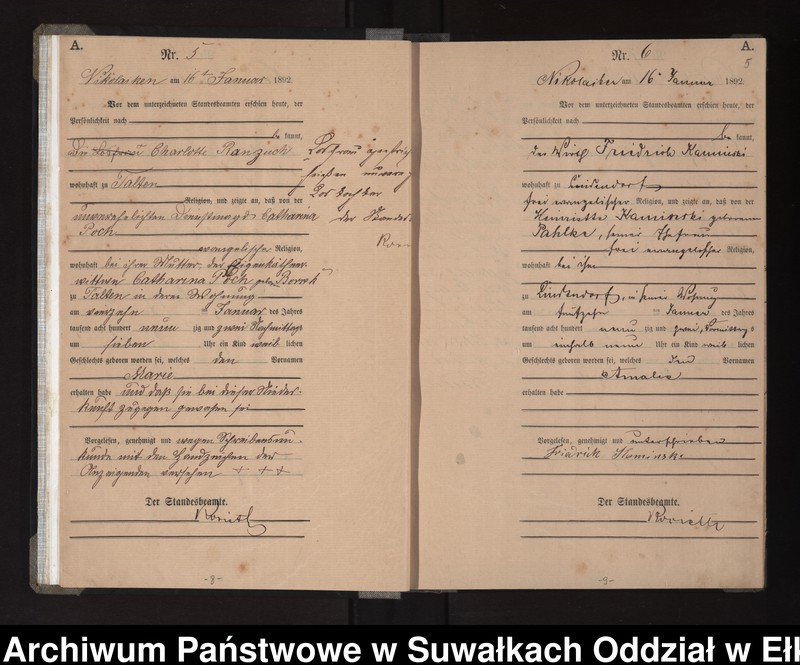 A.
Nr. 5
Nikolaiken am 16ten Januar 1892.
Vor dem unterzeichneten Standesbeamten erschien heute, der
Persönlichkeit nach
be kannt,
Die Losfrau Charlotte Ranzuch
wohnhaft zu Talten
Religion, und zeigte an, daß von der
unverehelichten Dienstmagd Catharina
Poch
evangelische Religion,
wohnhaft bei ihrer Mutter, der Eigenkäthner-
wittwe Catharina Poch geb.
zu Talten in deren Wohnung
am vierzehn ten Januar des Jahres
tausend acht hundert neun zig und zwei Nachmittags
um sieben Uhr ein Kind weib lichen
Geschlechts geboren worden sei, welches den Vornamen
Marie
erhalten habe und daß sie bei dieser Nieder-
kunft zugegen gewesen sei
Vorgelesen, genehmigt und wegen Schreibensun-
kunde mit den Handzeichen der
Anzeigenden versehen + + +
Der Standesbeamte.
-8-
Losfrau
der Standes
A.
5
Nr. 6
Nikolaiken am 16 Januar 1892.
Vor dem unterzeichneten Standesbeamten erschien heute, der
Persönlichkeit nach
be kannt,
der Wirth Friedrich Kaminski
wohnhaft zu Lindendorf
frei evangelischer Religion, und zeigte an, daß von der
Henriette Kaminski geborenen
Pahlke, seiner Ehefrau
frei evangelischer Religion,
wohnhaft bei ihm
zu Lindendorf, in seiner Wohnung
am fünfzehn ten Januar des Jahres
tausend acht hundert neun zig und zwei, Vormittags
um einhalb neun Uhr ein Kind weib lichen
Geschlechts geboren worden sei, welches den Vornamen
Amalie
erhalten habe
Vorgelesen, genehmigt und unterschrieben
Friedrich Kaminski
Der Standesbeamte.
-9-
Archiwum Państwowe w Suwałkach Oddział w Eł